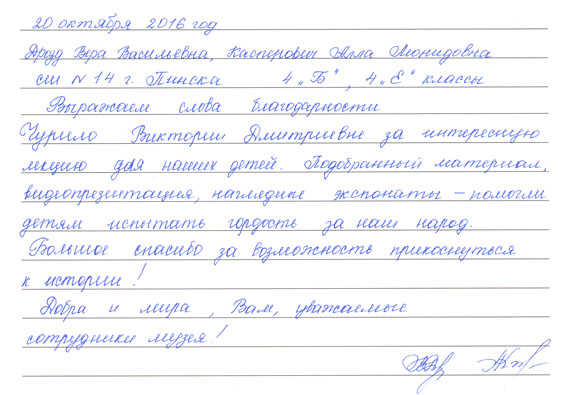 20 октября 2016 год
Дрозд Вера Васильевна, Касперович Алла Леонидовна
сш N 14 г. Пинска 4 „Б", 4 „Е" классы
Выражаем слова благодарности
Чурило Виктории Дмитриевне за интересную
лекцию для наших детей. Подобранный материал,
видеопрезентация, наглядные экспонаты – помогли
детям испытать гордость за наш народ.
Большое спасибо за возможность прикоснуться
к истории!
Добра и мира, Вам, уважаемые
сотрудники музея!